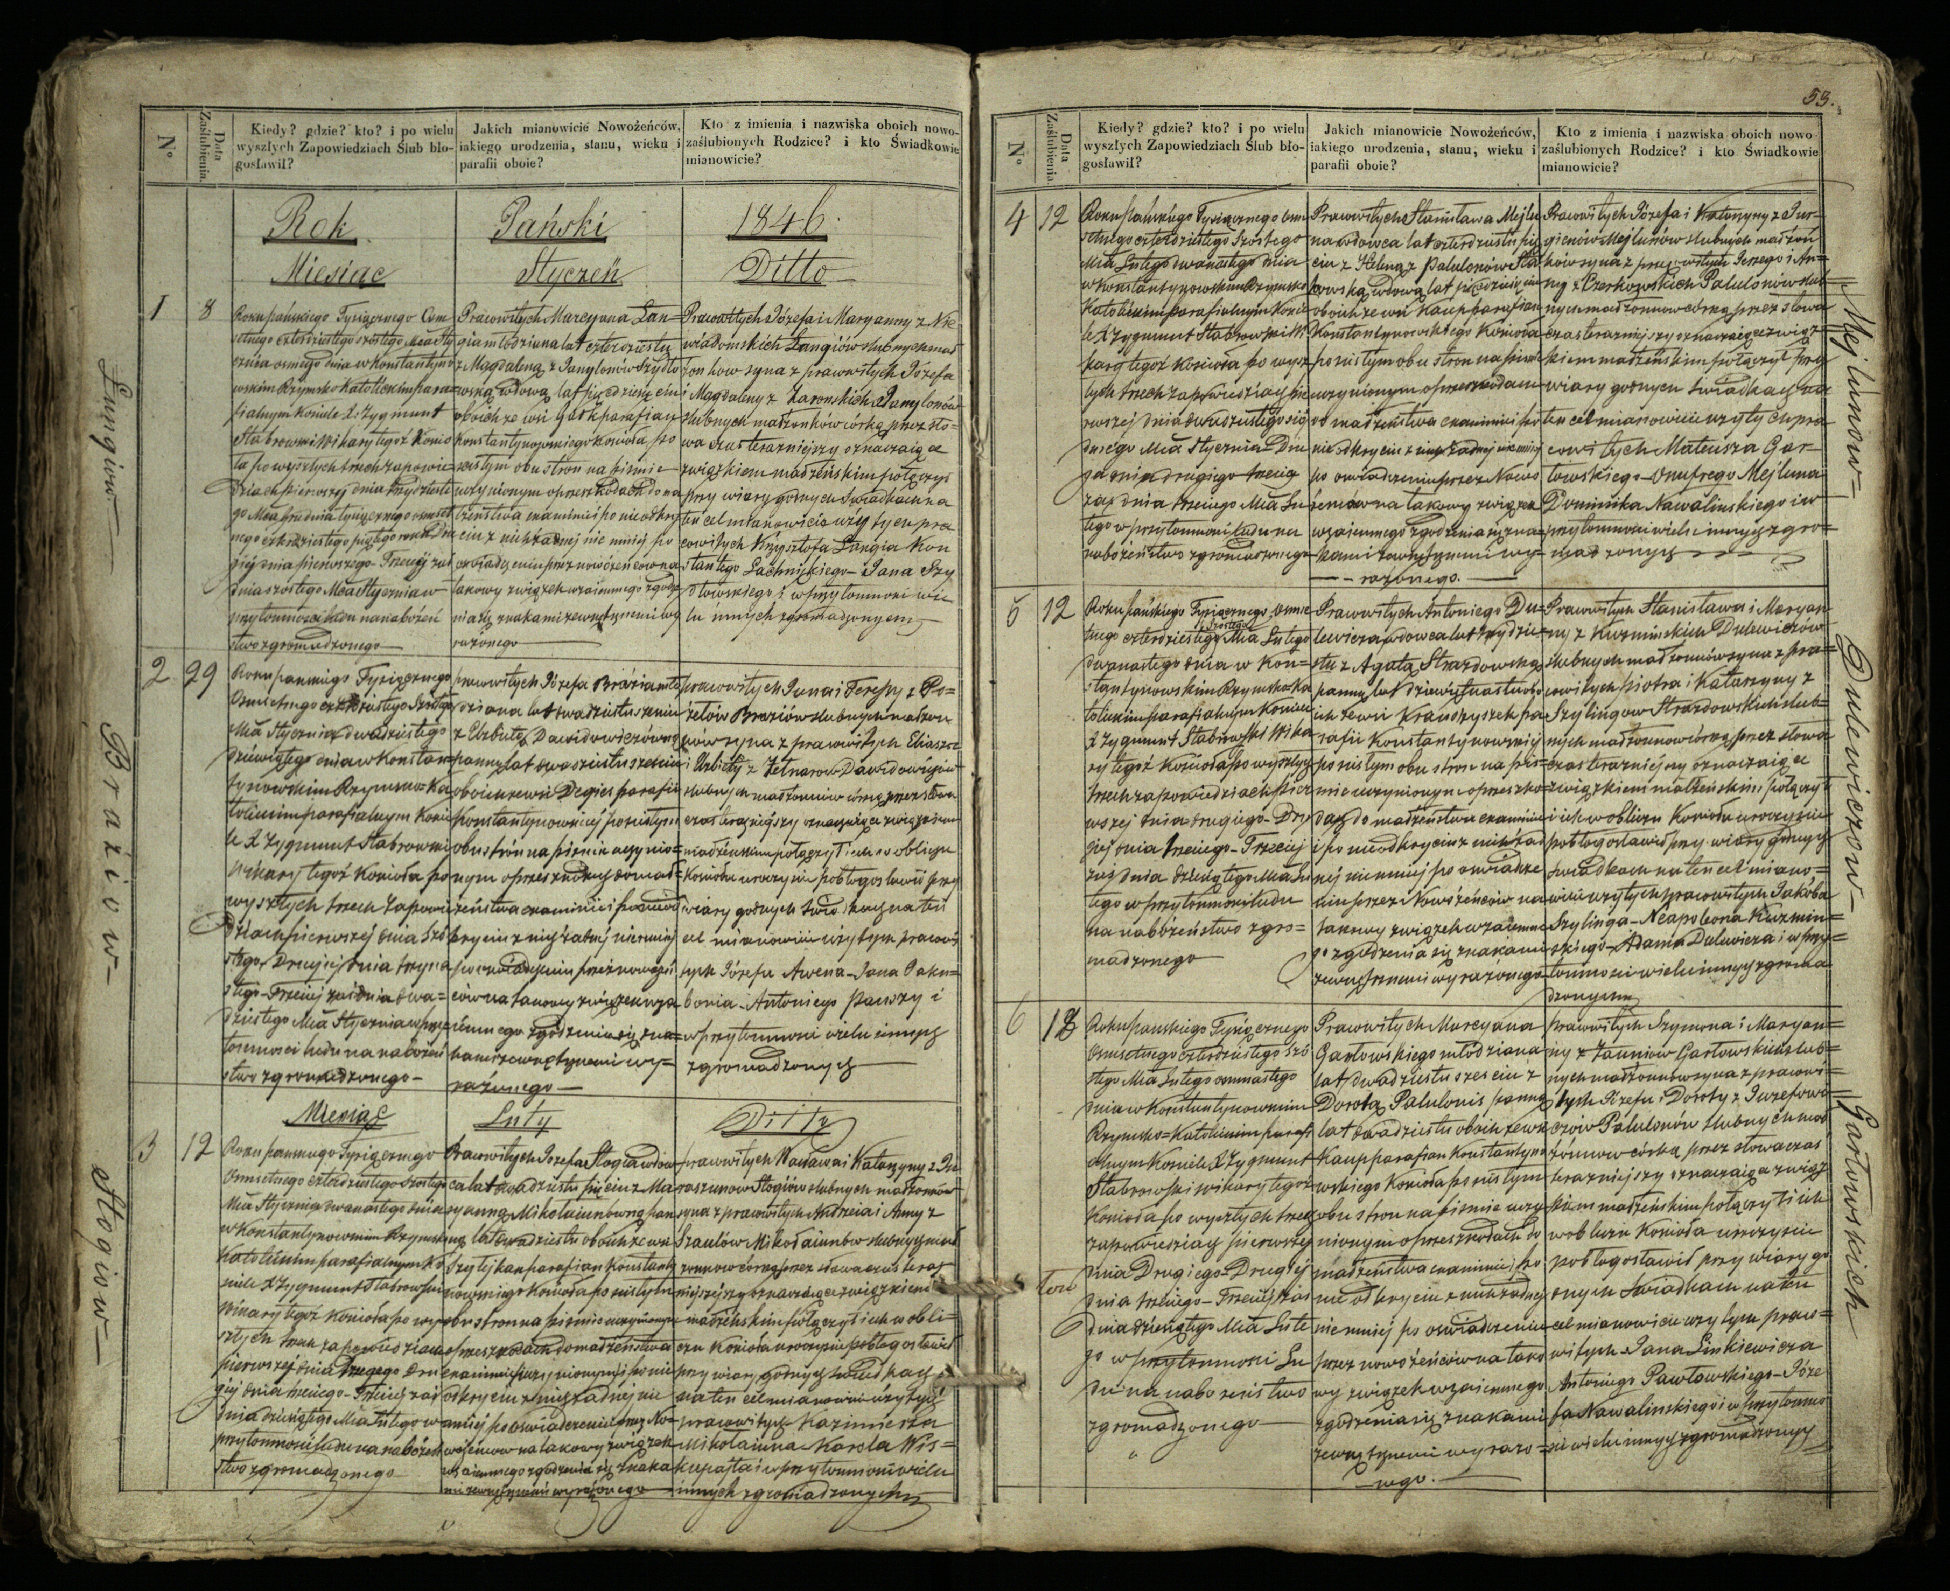 53.
N°
Data Zaślubienia.
Kiedy? gdzie? kto? i po wielu
wyszłych Zapowiedziach Ślub bło-
gosławił?
Jakich mianowicie Nowożeńców,
iakiego urodzenia, stanu, wieku i
parafii oboie?
Kto z imienia i nazwiska oboich nowo-
zaślubionych Rodzice? i kto Świadkowie
mianowicie?
Rok Pański 1846.
Miesiąc Styczeń Ditto
Lungiow
1
8
Roku pańskiego Tysiącznego Osm
setnego czterdziestego szóstego Mca Sty
cznia osmego dnia w Konstantyno
wskim Rzymsko Katolickim para=
fialnym Kościele X. Zygmunt
Stabrowski Wikary tegoż Kościo
ła po wyszłych trzech zapowie=
dziach pierwszej dnia trzydzieste
go Mca Grudnia tysiącznego osmset
nego czterdziestego piątego roku Dru
giej dnia pierwszego Trzeciej zaś
dnia szóstego Mca Stycznia w
przytomności ludu na nabożeń
stwo zgromadzonego
Pracowitych Marcyana Lan=
gia młodziana lat czterdziestu
z Magdaleną z Danylonów Szydło
wską wdową lat pięćdziesięciu
oboich ze wsi parafian
Konstantynowskiego Kościoła, po
ścisłym obu stron na piśmie
uczynionym o przeszkodach do ma
łżeństwa examinie i po nieodkry
ciu z nich żadnej nie mniej po
oświadczeniu przez nowożeńców na
takowy związek wzaiemnego zgodze
nia się znakami zewnętrznemi wy
rażonego
Pracowitych Józefa i Maryanny z Nie
wiadomskich Langiów ślubnych mał
żonków syna z pracowitych Józefa
i Magdaleny z Danylonów
ślubnych małżonków córką przez sło=
wa czas teraźniejszy oznaczaiące
związkiem małżeńskim połączył
przy wiary godnych Świadkach na
ten cel mianowicie użytych pra
cowitych Krzysztofa Langia Kon
stantego Lachnickiego Jana Szy
dłowskiego i w przytomności wie
lu innych zgromadzonych
Braziow
2
29
Roku pańskiego Tysiącznego
Osmsetnego czterdziestego Szóstego
Mca Stycznia dwudziestego
dziewiątego dnia w Konstan
tynowskim Rzymsko Ka
tolickim parafialnym Kości
ele X Zygmunt Stabrowski
Wikary tegoż Kościoła po
wyszłych trzech Zapowie
dziach pierwszej dnia szó
stego Drugiej dnia trzyna
stego Trzeciej zaś dnia dwu=
dziestego Mca Stycznia w przy
tomności ludu na nabożeń
stwo zgromadzonego
pracowitych Józefa Brazia mło
dziana lat dwudziestu sześciu
z Elżbietą Dawidowiczówną
panną lat dwudziestu sześciu
oboich ze wsi Degies parafii
Konstantynowskiej po ścisłym
obu stron na piśmie uczynio=
nym o przeszkodach do mał=
żeństwa examinie i po nieod
kryciu z nich żadnej nie mniej
po oświadczeniu przez nowożeń
ców na takowy związek wza
iemnego zgodzenia się zna=
kami zewnętrznemi wy=
rażonego
pracowitych Jana i Teresy z Po=
żelów Braziów ślubnych małżon
ków syna z pracowitych Eliasza
i Elżbiety z Dawidowiczów
ślubnych małżonków córką przez słowa
czas teraźniejszy oznaczaiące związkiem
małżeńskim połączył i ich w obliczu
Kościoła uroczyście pobłogosławił przy
wiary godnych Świadkach na ten
cel mianowicie użytych pracowi
tych Józefa Awena Jana
Antoniego i
w przytomności wielu innych
zgromadzonych
Miesiąc Luty Ditto
Stogiow
3
12
Roku pańskiego Tysiącznego
Osmsetnego czterdziestego Szóstego
Mca Stycznia dwunastego dnia
w Konstantynowskim Rzymsko
Katolickim parafialnym Ko
ściele X Zygmunt Stabrowski
Wikary tegoż Kościoła po wy
szłych trzech zapowiedziach
pierwszej dnia Drugiego Dru
giej dnia trzeciego Trzeciej zaś
dnia dziesiątego Mca Lutego w
przytomności ludu na nabożeń
stwo zgromadzonego
Pracowitych Józefa Stogia wdow
ca lat dwudziestu pięciu z Ma
ryanną Mikołaiunówną pan
ną lat dwudziestu oboich ze wsi
parafian Konstanty
nowskiego Kościoła po ścisłym
obu stron na piśmie uczynionym
o przeszkodach do małżeństwa
examinie i po nie
odkryciu z nich żadnej nie
mniej po oświadczeniu przez No=
wożeńców na takowy związek
wzaiemnego zgodzenia się znaka
mi zewnętrznemi wyrażonego
pracowitych Wacława i Katarzyny z
Stogiów ślubnych małżonków
syna z pracowitych Andrzeia i Anny z
Szaulów Mikołaiunów ślubnych mał
żonków córką przez słowa czas teraz
niejszy oznaczaiące związkiem
małżeńskim połączył i ich w obli=
czu Kościoła uroczyście pobłogosławił
przy wiary godnych świadkach
na ten cel mianowicie użytych
pracowitych Kazimierza
Mikołaiuna Karola
i w przytomności wielu
innych zgromadzonych
N°
Data Zaślubienia
Kiedy? gdzie? kto? i po wielu
wyszłych Zapowiedziach Ślub bło-
gosławił?
Jakich mianowicie Nowożeńców,
iakiego urodzenia, stanu, wieku i
parafii oboie?
Kto z imienia i nazwiska oboich nowo-
zaślubionych Rodzice? i kto Świadkowie
mianowicie?
Mejlunow
4
12
Roku pańskiego Tysiącznego osm
setnego czterdziestego Szóstego
Mca Lutego dwunastego dnia
w Konstantynowskim Rzymsko
Katolickim parafialnym Kości
ele X Zygmunt Stabrowski Wi
kary tegoż Kościoła po wysz
łych trzech zapowiedziach pie
rwszej dnia dwudziestego
Mca Stycznia Dru
giej dnia drugiego trzeciej
zaś dnia trzeciego Mca Lu
tego w przytomności ludu na
nabożeństwo zgromadzonego
Pracowitych Stanisława Mejlu
na wdowca lat czterdziestu pię
ciu z Heleną z Palulonów
wdową lat
oboich ze wsi Kaup parafian
Konstantynowskiego Kościoła
po ścisłym obu stron na piśmie
uczynionym o przeszkodach
do małżeństwa examinie i po
nieodkryciu z nich żadnej nie mniej
po oświadczeniu przez Nowo
żeńców na takowy związek
wzaiemnego zgodzenia się zna=
kami zewnętrznemi wy=
rażonego.
Pracowitych Józefa i Katarzyny z Jur=
gienów Mejlunów ślubnych małżon
ków syna z pracowitych Jerzego i An=
ny z Palulonów ślub
nych małżonków córką przez słowa
czas teraźniejszy oznaczaiące związ
kiem małżeńskim połączył przy
wiary godnych Świadkach na
ten cel mianowicie użytych pra
cowitych Mateusza Gar=
towskiego Onufrego Mejluna
Dominika Nawalinskiego i w
przytomności wielu innych zgro=
madzonych
Dulewiczow
5
12
Roku pańskiego Tysiącznego osmse
tnego czterdziestego Szóstego Mca Lutego
dwunastego dnia w Kon=
stantynowskim Rzymsko Ka
tolickim parafialnym Kościele
X Zygmunt Stabrowski Wika
ry tegoż Kościoła po wyszłych
trzech zapowiedziach pier
wszej dnia drugiego Dru
giej dnia trzeciego Trzeciej
zaś dnia dziesiątego Mca Lu
tego w przytomności ludu
na nabożeństwo zgro=
madzonego
Pracowitych Antoniego Du=
lewicza wdowca lat trzydzie
stu z Agatą Strazdowską
panną lat dziewiętnastu obo
ich ze wsi pa
rafii Konstantynowskiej
po ścisłym obu stron na piś=
mie uczynionym o przeszko=
dach do małżeństwa examinie
i po nieodkryciu z nich żad
nej nie mniej po oświadcze
niu przez Nowożeńców na
takowy związek wzaiemne
go zgodzenia się znakami
zewnętrznemi wyrażonego
Pracowitych Stanisława i Maryan
ny z Kuzmińskich Dulewiczów
ślubnych małżonków syna z pra=
cowitych Piotra i Katarzyny z
Szylingow Strazdowskich ślub=
nych małżonków córką przez słowa
czas teraźniejszy oznaczaiące
związkiem małżeńskim połączył
i ich w obliczu Kościoła uroczyście
pobłogosławił przy wiary godnych
Świadkach na ten cel miano=
wicie użytych pracowitych Jakóba
Szylinga Neapoleona Kuzmin=
skiego Adama Dulewicza i w przy=
tomności wielu innych zgroma
dzonych
Gartowskich
6
Roku pańskiego Tysiącznego
Osmsetnego czterdziestego Szó
stego Mca Lutego osmnastego
dnia w Konstantynowskim
Rzymsko=Katolickim parafi
alnym Kościele X Zygmunt
Stabrowski Wikary tegoż
Kościoła po wyszłych trzech
zapowiedziach pierwszej
dnia Drugiego Drugiej
dnia trzeciego Trzeciej zaś
dnia dziesiątego Mca Lute
go w przytomności Lu
du na nabożeństwo
zgromadzonego
Pracowitych Marcyana
Gartowskiego młodziana
lat dwudziestu sześciu z
Dorotą Palulonis panną
lat dwudziestu oboich ze wsi
Kaup parafian Konstantyno
wskiego Kościoła po ścisłym
obu stron na piśmie uczy
nionym o przeszkodach do
małżeństwa examinie i po
nieodkryciu z nich żadnej
nie mniej po oświadczeniu
przez nowożeńców na tako
wy związek wzaiemnego
zgodzenia się znakami
zewnętrznemi wyrażo=
nego.
pracowitych Szymona i Maryan=
ny z Gartowskich ślub=
nych małżonków syna z pracowi=
tych Józefa i Doroty z
Palulonów ślubnych mał
żonków córką przez słowa czas
teraźniejszy oznaczaiące związ
kiem małżeńskim połączył i ich
w obliczu Kościoła uroczyście
pobłogosławił przy wiary go
dnych Świadkach na ten
cel mianowicie użytych praco=
witych Jana Linkiewicza
Antoniego Pawłowskiego Józe
fa Nawalinskiego i w przytomno
ści wielu innych zgromadzonych